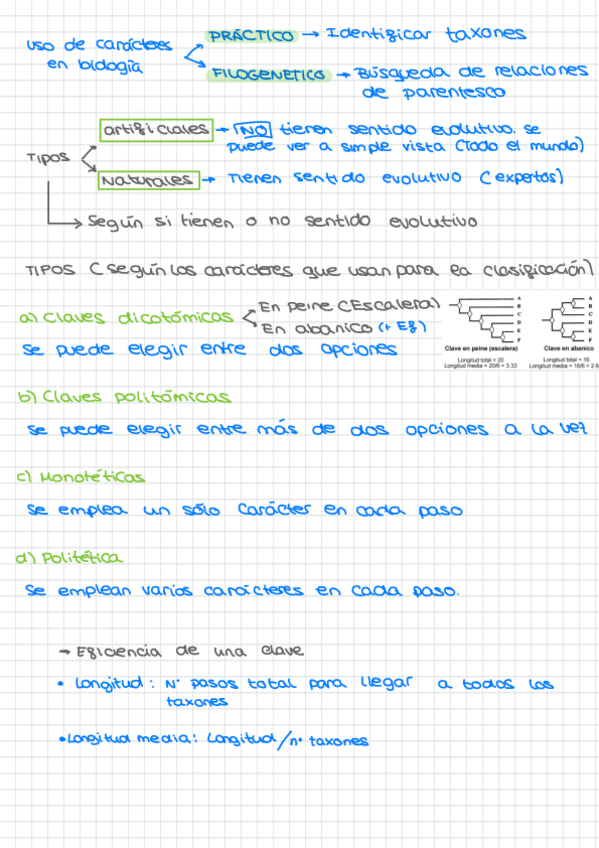 uso de carácteres
en biología
PRÁCTICO → Identificar taxones
FILOGENETICO → Búsqueda de relaciones
de parentesco
TIPOS
artificiales → NO tienen sentido evolutivo. se
puede ver a simple vista (Todo el mundo)
Naturales → Tienen sentido evolutivo (expertos)
Según si tienen o no sentido evolutivo
TIPOS (según los carácteres que usan para la clasificación)
a) Claves dicotómicas
En peine (Escalera)
En abanico (+ Ef)
se puede elegir entre dos opciones
A
B
C
D
E
F
Clave en peine (escalera)
Longitud total = 20
Longitud media = 20/6 = 3.33
A
B
C
D
E
F
Clave en abanico
Longitud total = 16
Longitud media = 16/6 = 2.6
b) Claves politómicas
se puede elegir entre más de dos opciones a la vez
c) Monotéticas
se emplea un sólo carácter en cada paso
d) Politética
se emplean varios carácteres en cada paso.
→ Eficiencia de una clave
• Longitud: Nº pasos total para llegar a todos los
taxones
• Longitud media: Longitud/nº taxones